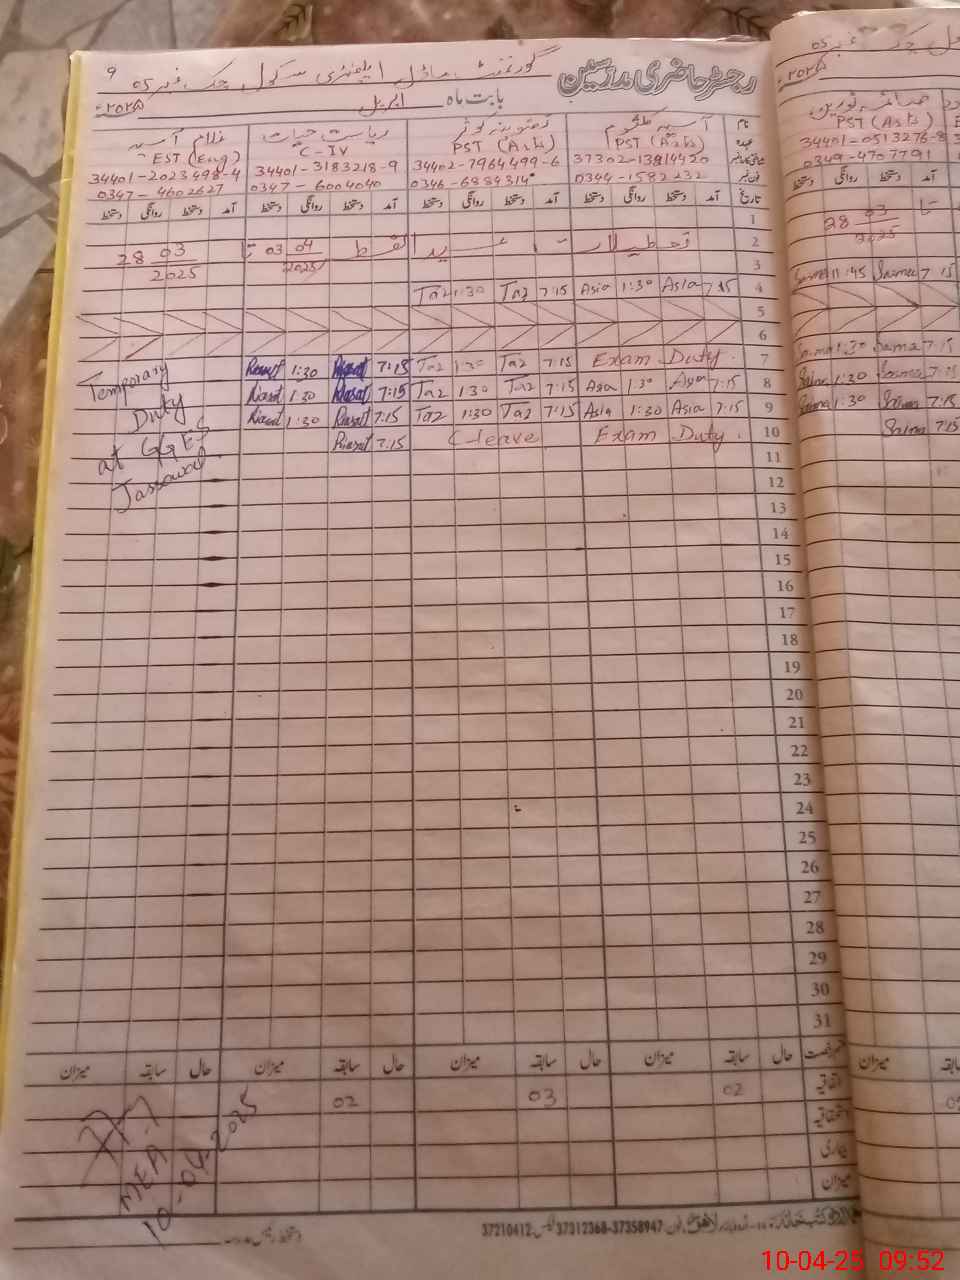 رجسٹر حاضری مدرسین گورنمنٹ ماڈل ایلیمنٹری سکول چک نمبر 05 9
بابت ماہ اپریل ۲۰۲۵ء
نام آسیہ کلثوم کوثر ریاست حیات غلام آسیہ
عہدہ PST (Arts) PST (Arts) C-IV EST (Eng)
37302-13914420 34402-7964499-6 34401-3183218-9 34401-2023498-4
فون نمبر 0344-1582232 0346-6884314 0347-6004040 0347-4602627
تاریخ آمد دستخط روانگی دستخط آمد دستخط روانگی دستخط آمد دستخط روانگی دستخط آمد دستخط روانگی دستخط
1
2 تعطیلات عید الفطر 03 04 2025 تا 28 03 2025
3
4 7:15 Asia 1:30 Asia 7:15 Taz 1:30 Taz
5
6
7 Exam Duty. 7:15 Taz 1:30 Taz 7:15 Riasat 1:30 Riasat
8 7:15 Asia 1:30 Asia 7:15 Taz 1:30 Taz 7:15 Riasat 1:30 Riasat
9 7:15 Asia 1:30 Asia 7:15 Taz 1:30 Taz 7:15 Riasat 1:30 Riasat
10 Exam Duty. C-leave 7:15 Riasat
Temporary
Duty
at GGES
Jassowal.
11
12
13
14
15
16
17
18
19
20
21
22
23
24
25
26
27
28
29
30
31
حال سابقہ میزان حال سابقہ میزان حال سابقہ میزان حال سابقہ میزان
اتفاقیہ 02 03 02
استحقاقیہ
بیماری
میزان
MEA-7
10-04-2025
اردو بازار لاہور فون: 37312368-37358947 فیکس: 37210412
چک نمبر 05
۲۰۲۵ء
صائمہ نورین
PST (Arts)
34401-0513276-8
0349-4707791
آمد دستخط روانگی دستخط
تا 28 03
2025
7:15 Saima 11:45 Saima
7:15 Saima 1:30 Saima
7:15 Saima 1:30 Saima
7:15 Saima 1:30 Saima
7:15 Saima
سابقہ میزان
10-04-25 09:52